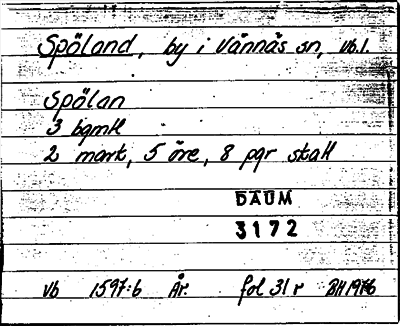 Spöland, by i Vännäs sn, Vb.l.
Spölan
3 bgmH
2 mark, 5 öre, 8 pgr skatt
DAUM
3172
Vb 1597:6 År. fol 31 r BH 1976